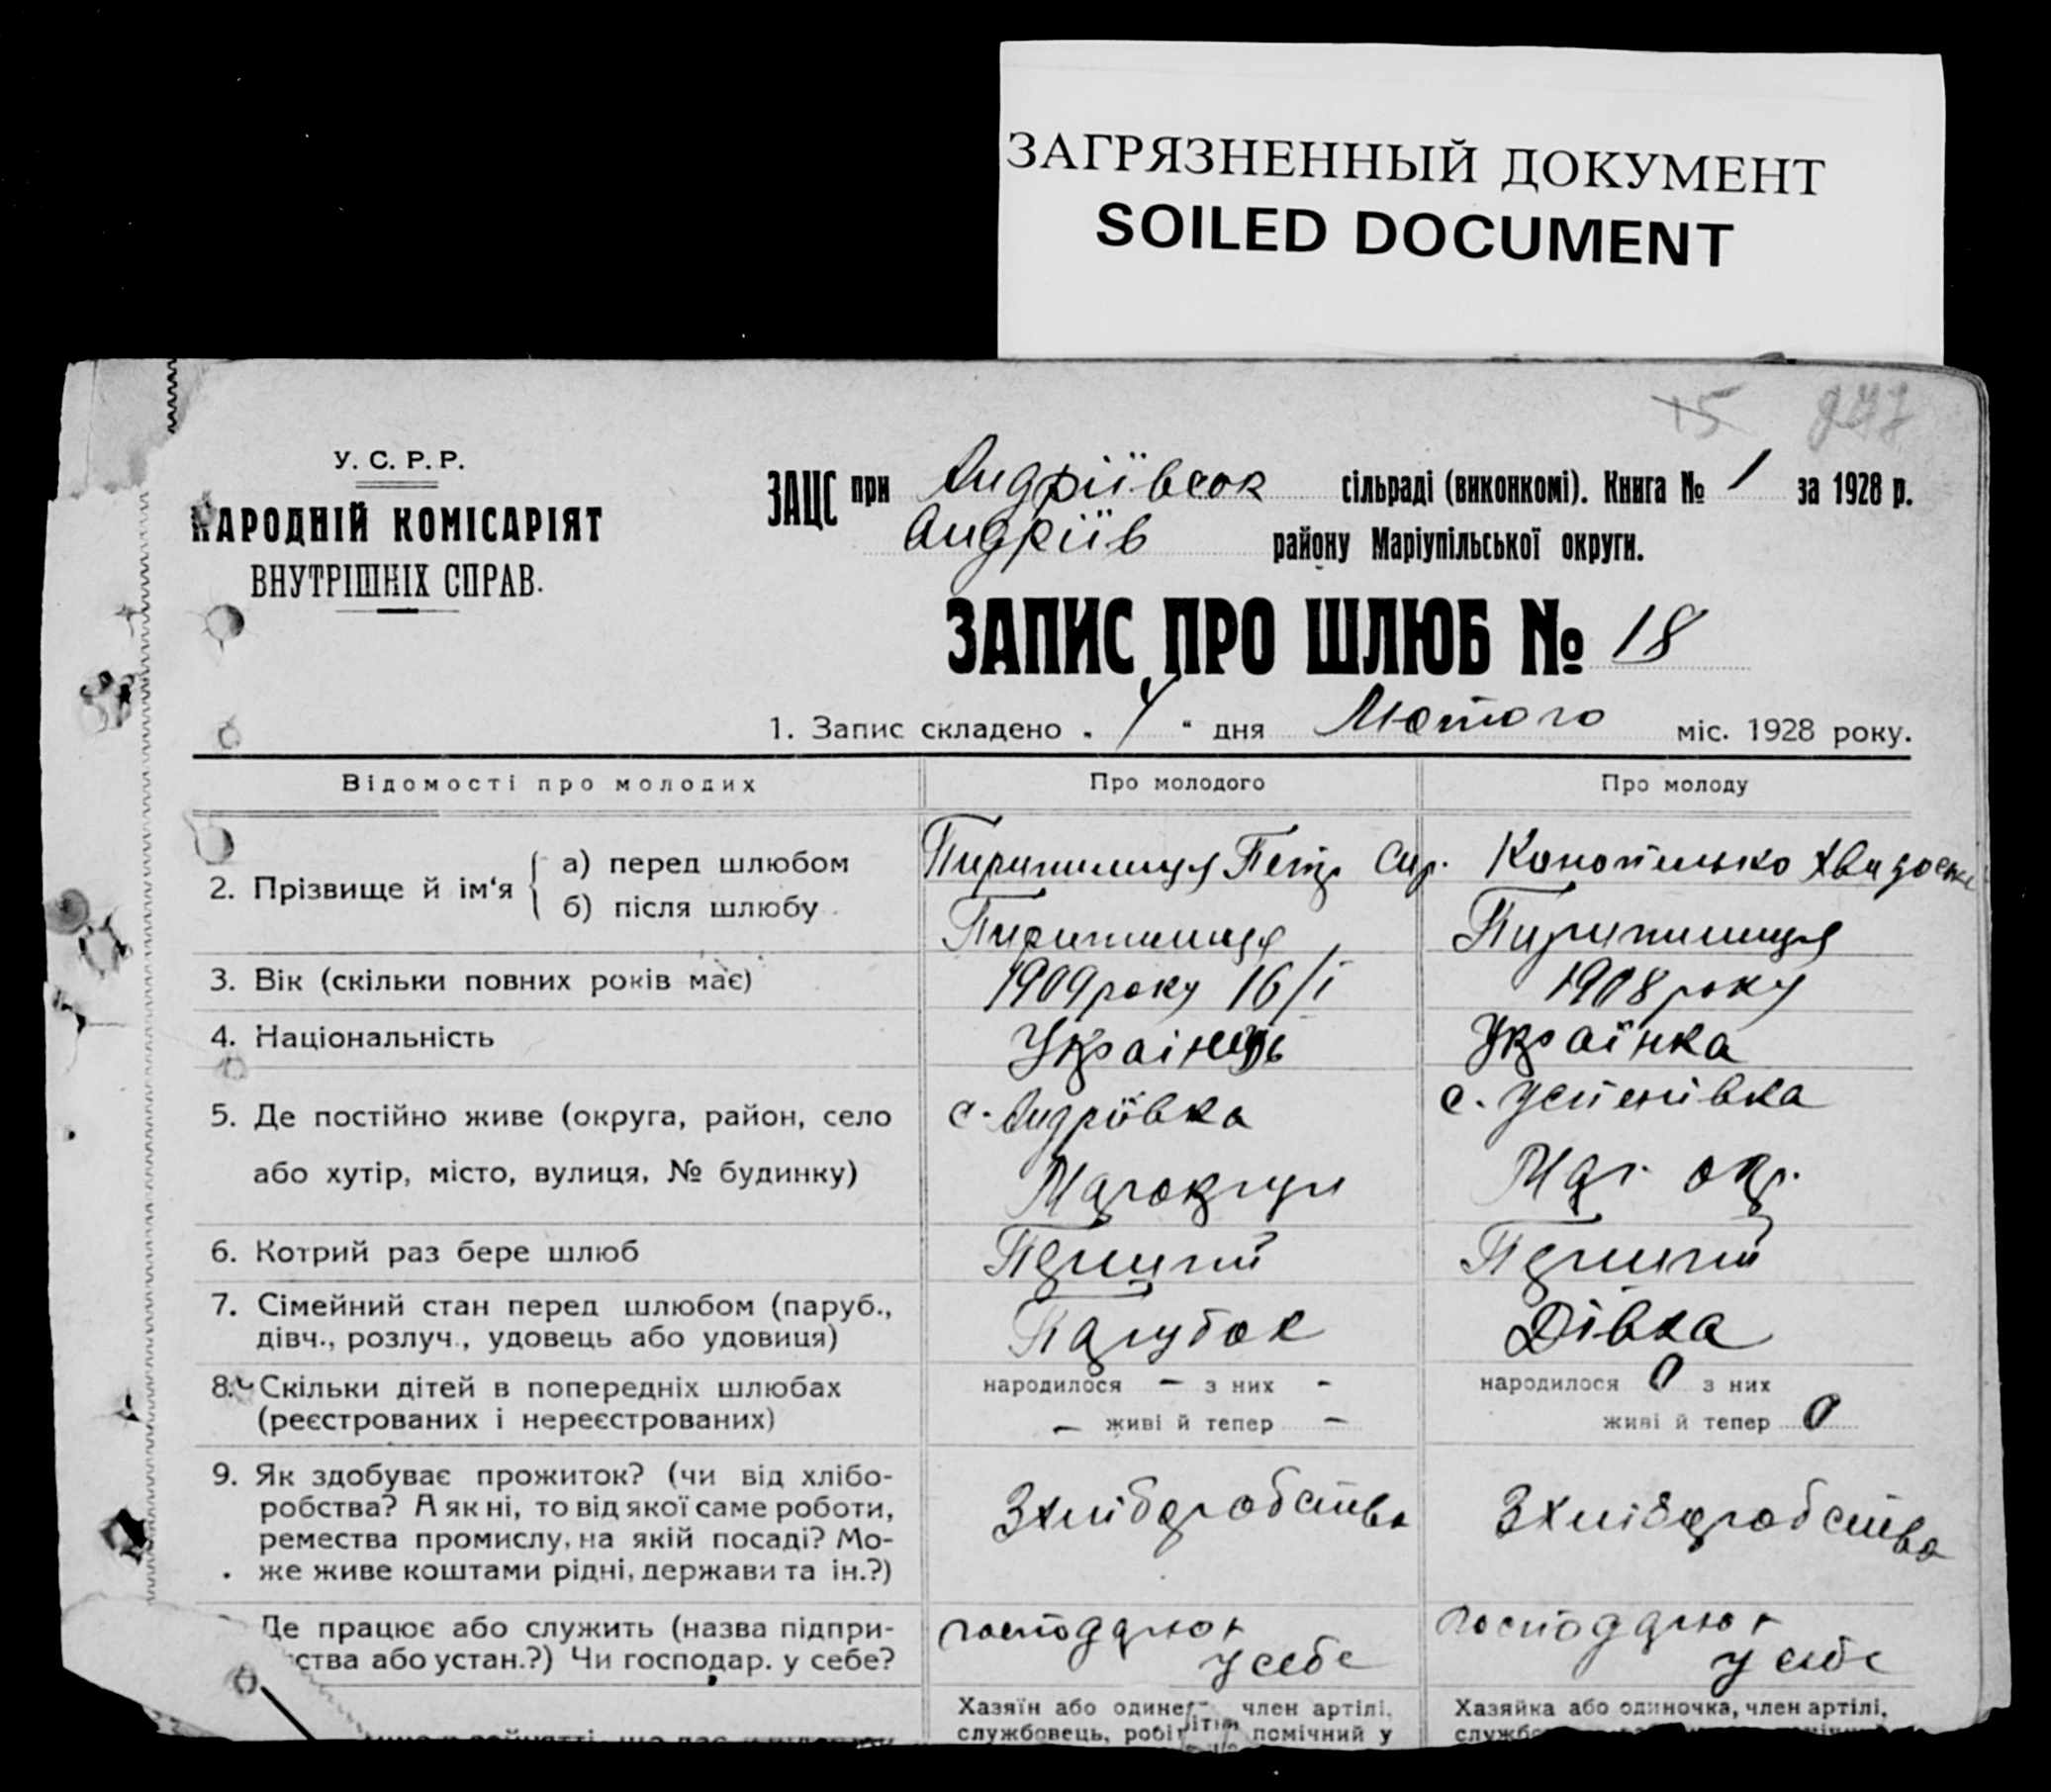 ЗАГРЯЗНЕННЫЙ ДОКУМЕНТ
SOILED DOCUMENT
15
У. С. Р. Р.
НАРОДНІЙ КОМІСАРІЯТ
ВНУТРІШНІХ СПРАВ.
ЗАЦС при Андріївськ сільраді (виконкомі). Книга № 1 за 1928 р.
Андріїв району Маріупільської округи.
ЗАПИС ПРО ШЛЮБ № 18
1. Запис складено „ 4 " дня Лютого міс. 1928 року.
Відомості про молодих Про молодого Про молоду
2. Прізвище й ім'я
а) перед шлюбом Петр Конопелько
б) після шлюбу
3. Вік (скільки повних років має) 1909 року 16/I 1908 року
4. Національність Українець Українка
5. Де постійно живе (округа, район, село с. Андріївка с. Успенівка
або хутір, місто, вулиця, № будинку) Мар. окр.
6. Котрий раз бере шлюб Перший Перший
7. Сімейний стан перед шлюбом (паруб., Парубок Дівка
дівч., розлуч., удовець або удовиця)
8. Скільки дітей в попередніх шлюбах народилося - з них - народилося 0 з них
(реєстрованих і нереєстрованих) - живі й тепер - живі й тепер 0
9. Як здобуває прожиток? (чи від хлібо-
робства? А як ні, то від якої саме роботи, З хліборобства З хліборобства
ремества промислу, на якій посаді? Мо-
же живе коштами рідні, держави та ін.?)
Де працює або служить (назва підпри- господарює господарює
ства або устан.?) Чи господар. у себе? у себе у себе
Хазяїн або один член артілі, Хазяйка або одиночка, член артілі,
службовець, робіт помічний у